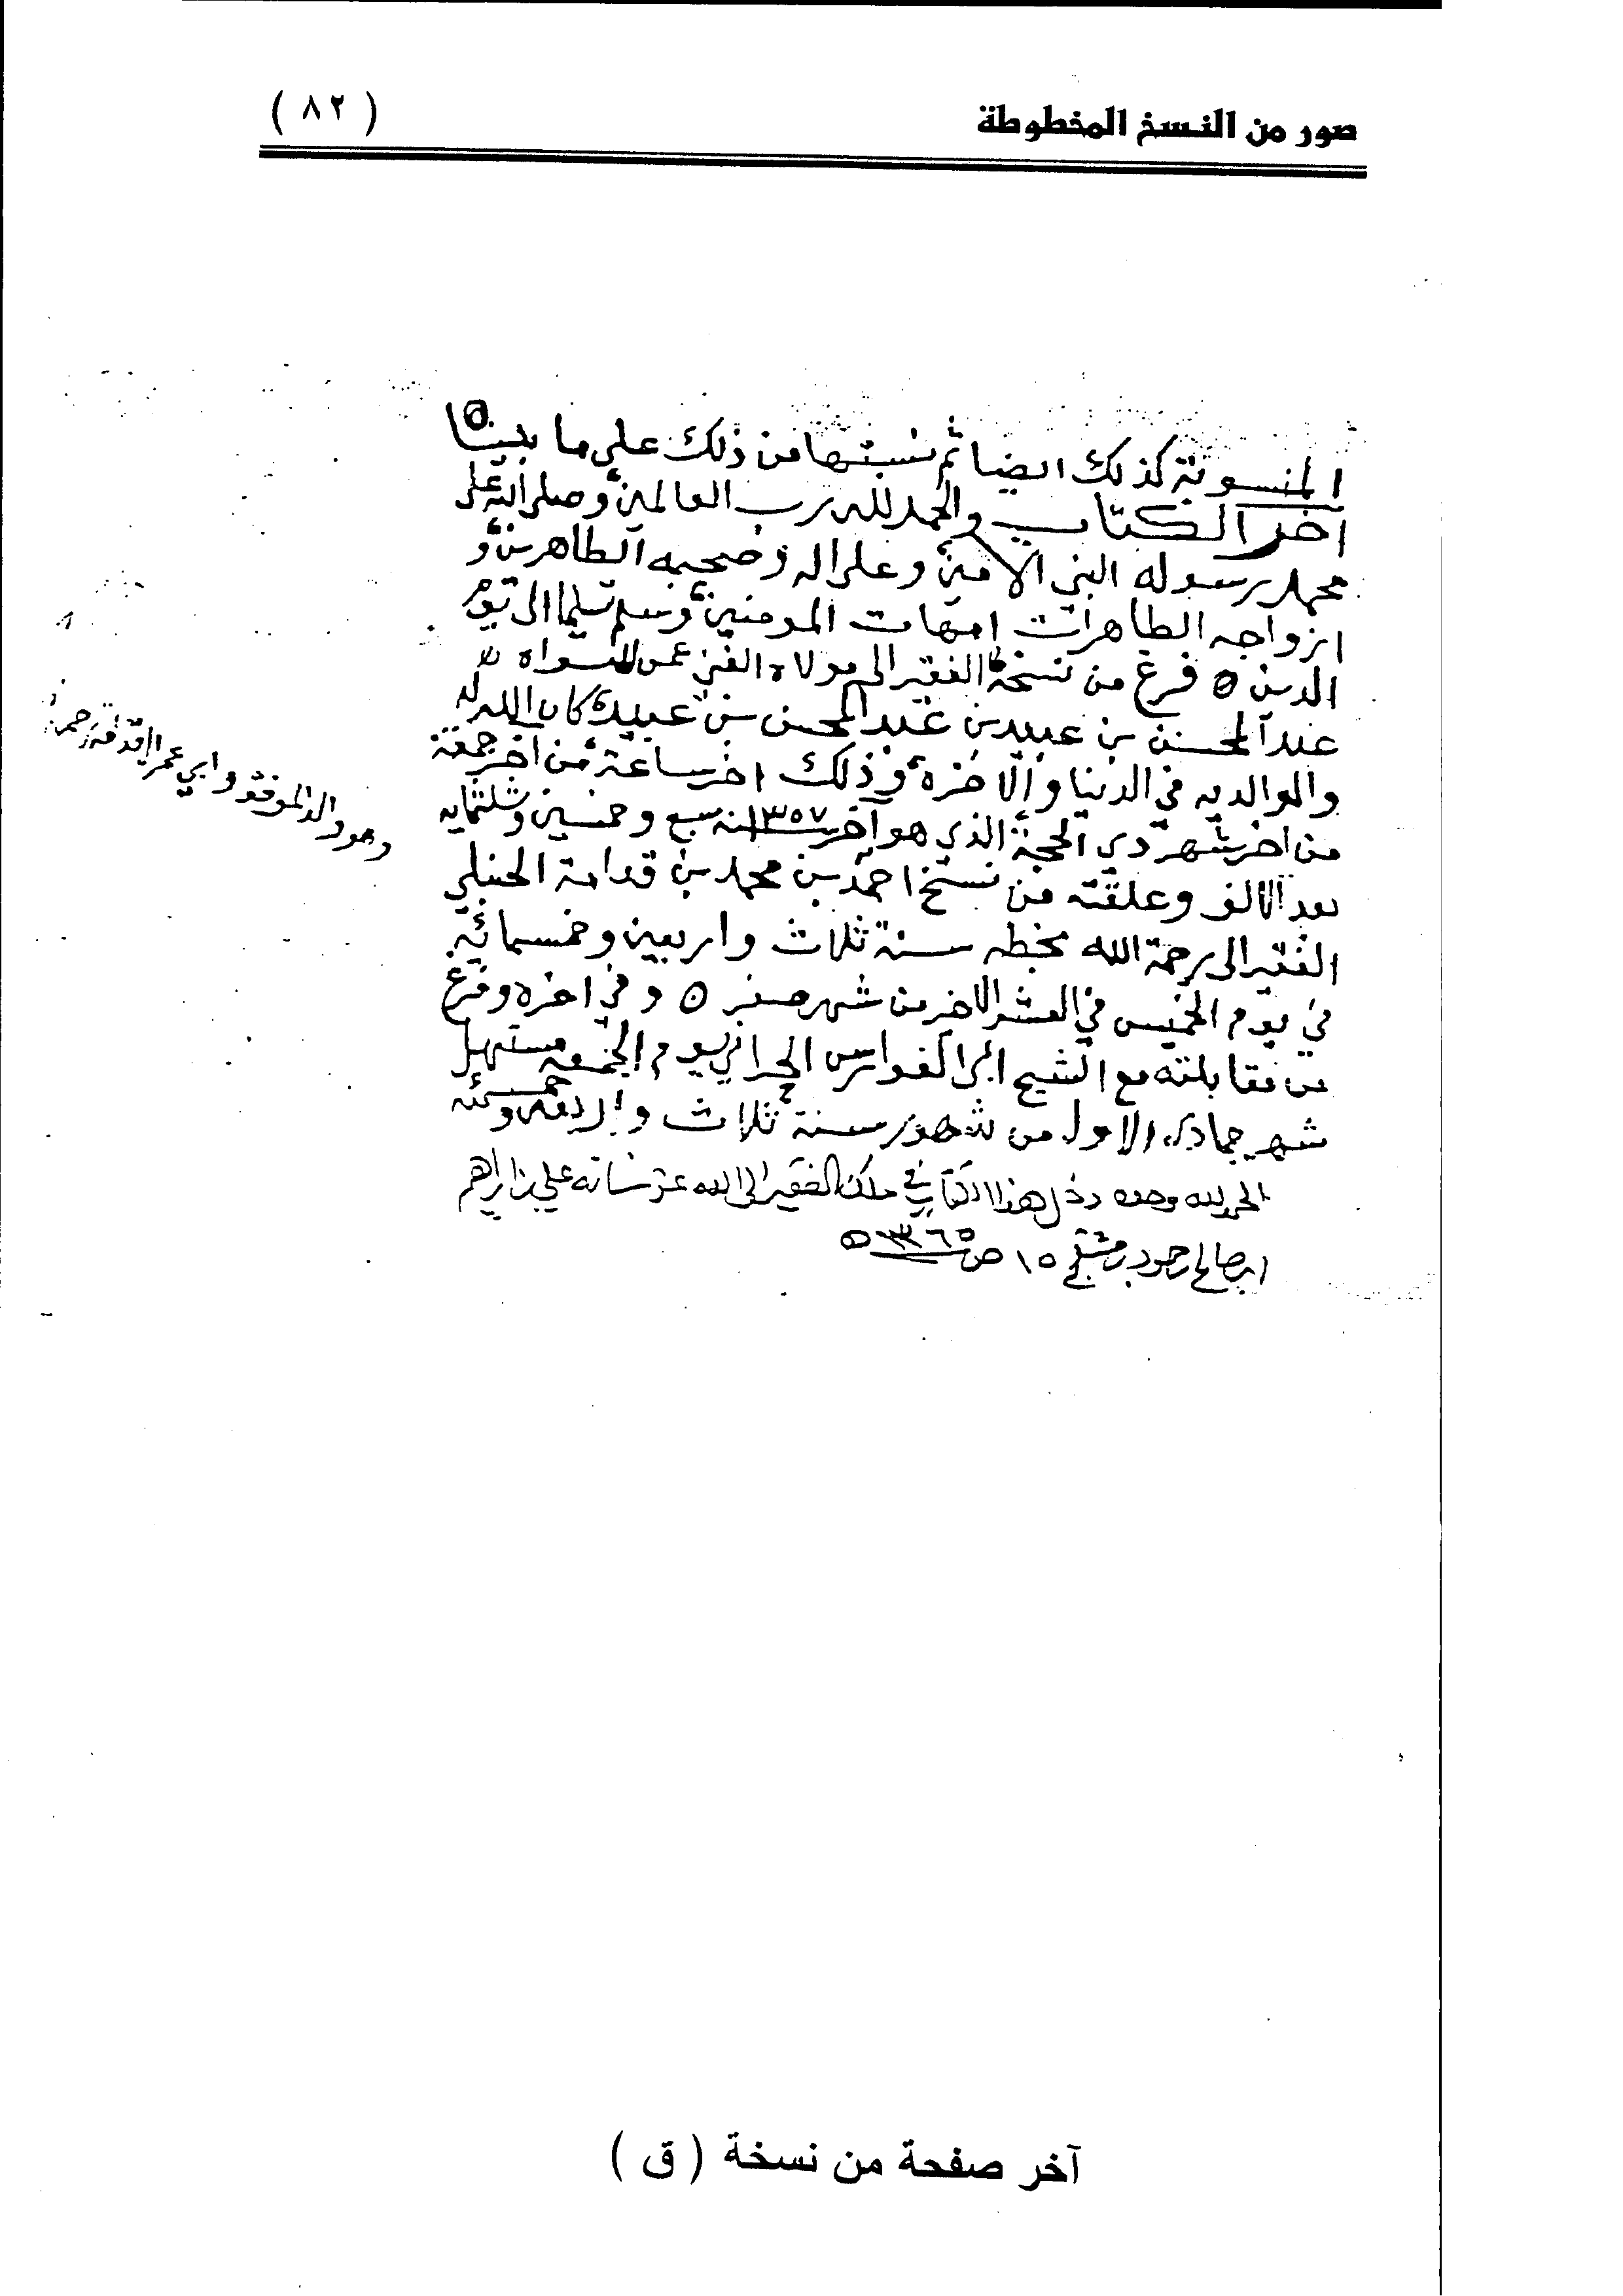 صور من النسخ المخطوطة
( ٨٢ )
المنسوبة كذلك ايضا ثم نسبتها من ذلك على ما بينا ه
آخر الكتاب والحمد لله رب العالمين وصلى الله على
محمد رسوله النبي الامين وعلى اله وصحبه الطاهرين و
ازواجه الطاهرات امهات المومنين وسلم تسليما الى يوم
الدين ه فرغ من نسخة الفقير الى مولاه الغني عمن سواه
عبد المحسن بن عبيد بن عبد المحسن بن عبيد كان الله له
والوالديه في الدنيا والاخرة وذلك اخر ساعة من اخر جمعة
من اخر شهر ذي الحجة الذي هو آخر سنة ١٣٥٧ سبع وخمسين وثلثمايه
بعد الالف وعلقته من نسخ احمد بن محمد بن قدامة الحنبلي
الفقير الى رحمة الله بخطه سنة ثلاث واربعين وخمسمائه
في يوم الخميس في العشر الاخر من شهر صفر ه وفي اخره وفرغ
من مقابلته مع الشيخ ابي الفوارس الحراني يوم الجمعه مستهل
شهر جمادى الاول من شهور سنة ثلاث واربعين وخمسمئه
الحمد لله وحده دخل هذا الكتاب في ملك الفقير الى الله عز شانه علي بن ابراهيم
١٥ ص ١٣٦٥
وهو والد الموفق وابي عمر
آخر صفحة من نسخة ( ق )